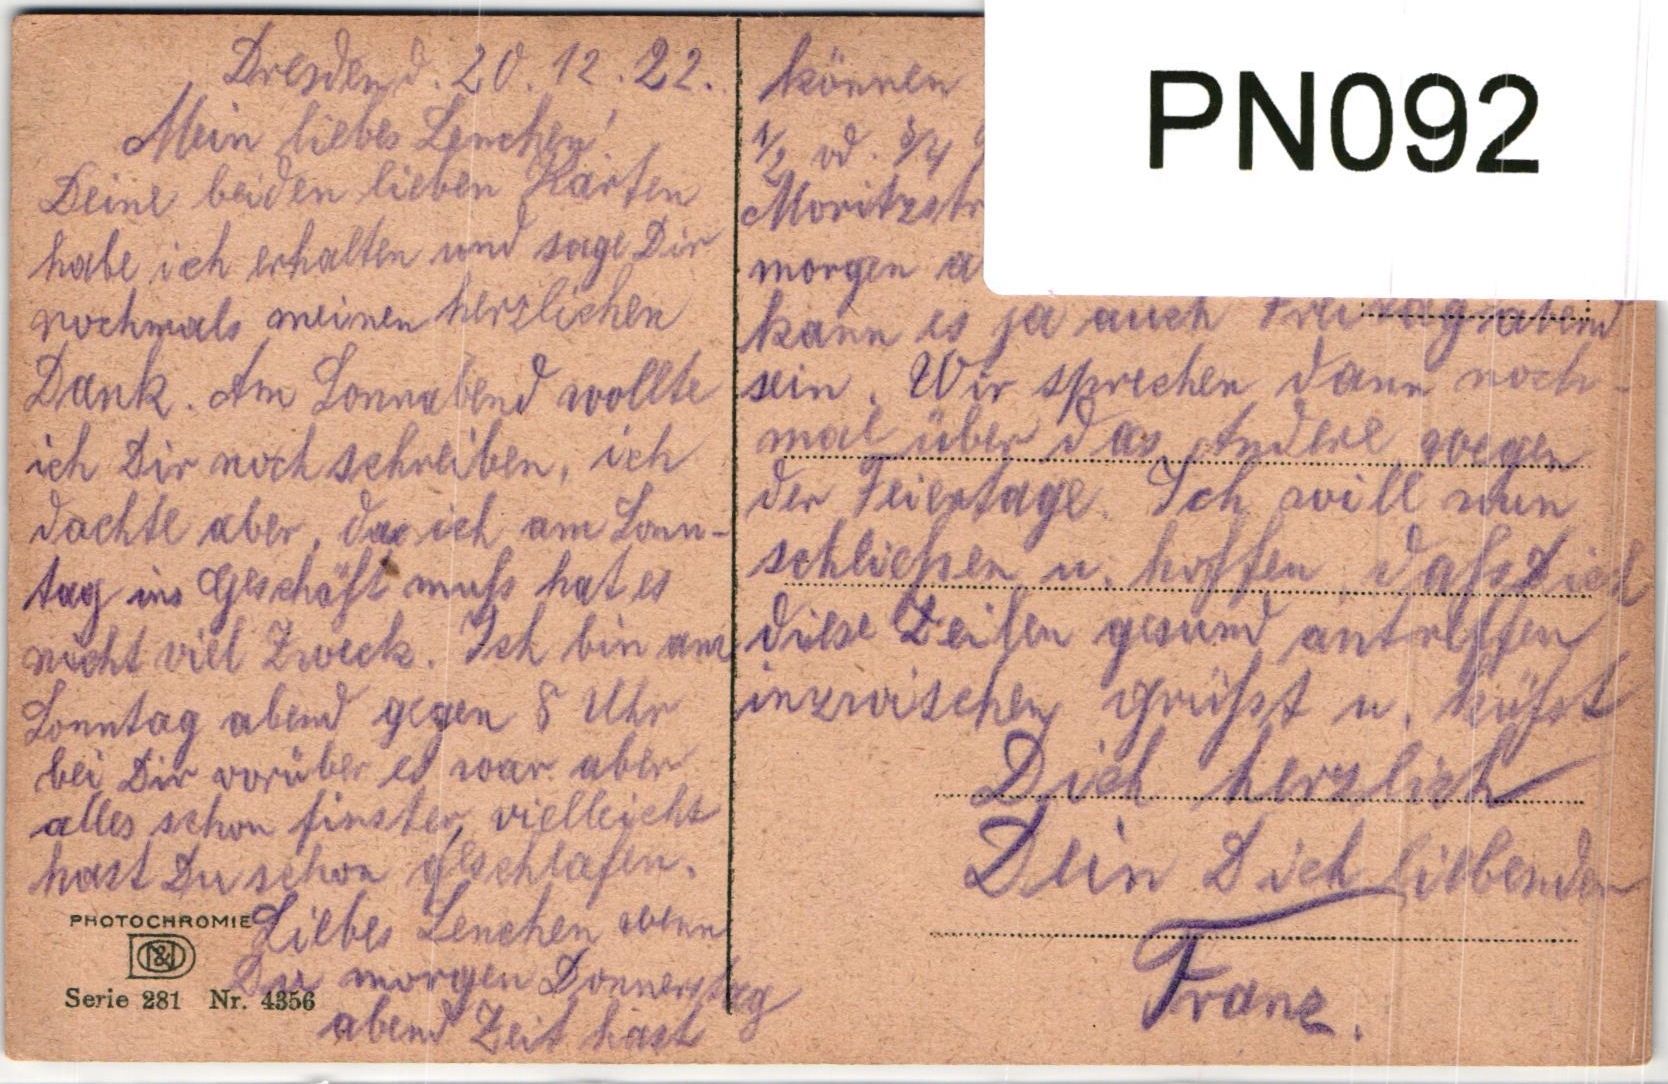 Dresden d. 20.12.22.
Mein liebes Lenchen!
Deine beiden lieben Karten
habe ich erhalten und sage Dir
nochmals meinen herzlichen
Dank. Am Sonnabend wollte
ich Dir noch schreiben, ich
dachte aber, das ich am Sonn-
tag ins Geschäft muß hat es
nicht viel Zweck. Ich bin am
Sonntag abend gegen 8 Uhr
bei Dir vorüber es war aber
alles schon finster, vielleicht
hast Du schon geschlafen.
Liebes Lenchen wenn
Du morgen Donnerstag
abend Zeit hast
PHOTOCHROMIE
Serie 281 Nr. 4356
können
1/2 od. 3/4
Moritzstr
morgen a
kann es ja auch Freitag abend
sein. Wir sprechen dann noch-
mal über das Andere wegen
der Feiertage. Ich will nun
schließen u. hoffen, daß Dich
diese Zeilen gesund antreffen
inzwischen grüßt u. küßt
Dich herzlich
Dein Dich liebender
Franz.
PN092